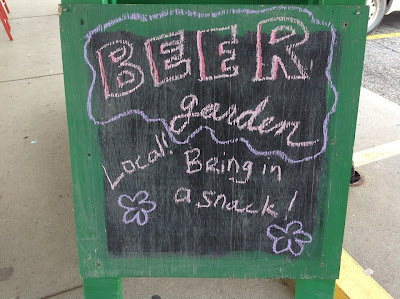 BEER
garden
Local! Being in
a snack!